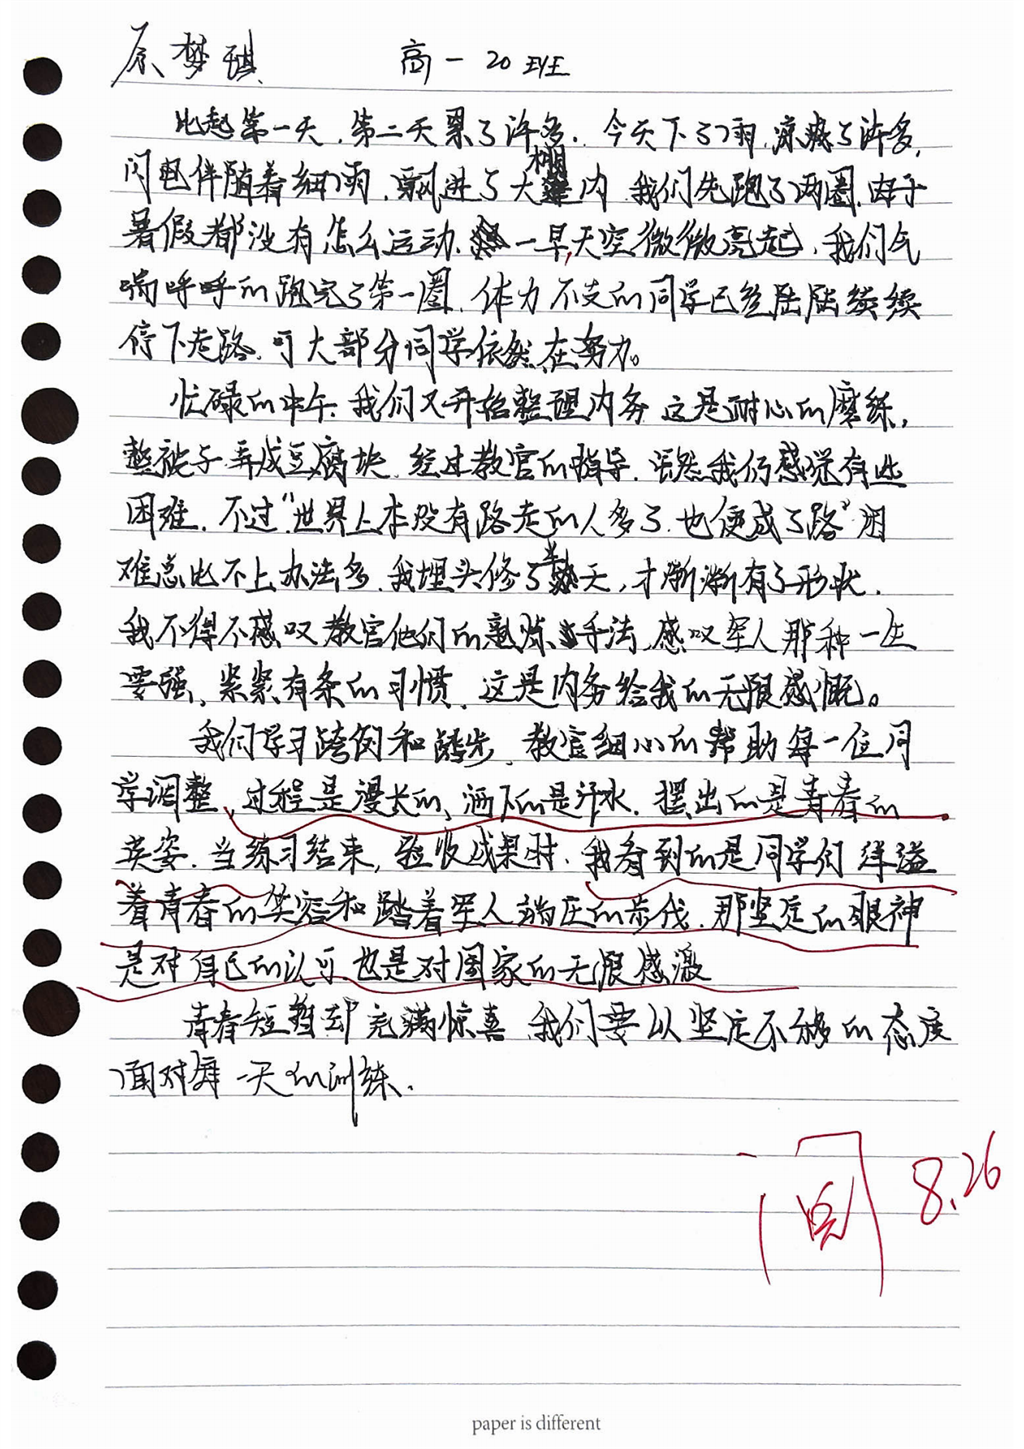 原梦琪 高一20班
比起第一天,第二天累了许多,今天下了雨,凉爽了许多,
闪电伴随着细雨,飘进了大棚内,我们先跑了两圈,由于
暑假都没有怎么运动,一早,天空微微亮起,我们气
喘呼呼的跑完了第一圈,体力不支的同学已经陆陆续续
停下走路,可大部分同学依然在努力。
忙碌的中午,我们又开始整理内务,这是耐心的磨练,
整被子弄成豆腐块,经过教官的指导,虽然我仍感觉有些
困难,不过“世界上本没有路走的人多了,也便成了路”困
难总比不上办法多,我埋头修了半天,才渐渐有了形状,
我不得不感叹教官他们的熟练手法,感叹军人那种一生
要强、紧紧有条的习惯,这是内务给我的无限感慨。
我们学习跨列和跨步,教官细心的帮助每一位同
学调整,过程是漫长的,洒下的是汗水,摆出的是青春的
英姿,当练习结束,验收成果时,我看到的是同学们洋溢
着青春的笑容和踏着军人端庄的步伐,那坚定的眼神
是对自己的认可,也是对国家的无限感激
青春短暂却充满惊喜,我们要以坚定不移的态度
面对每一天的训练.
阅 8.26
paper is different